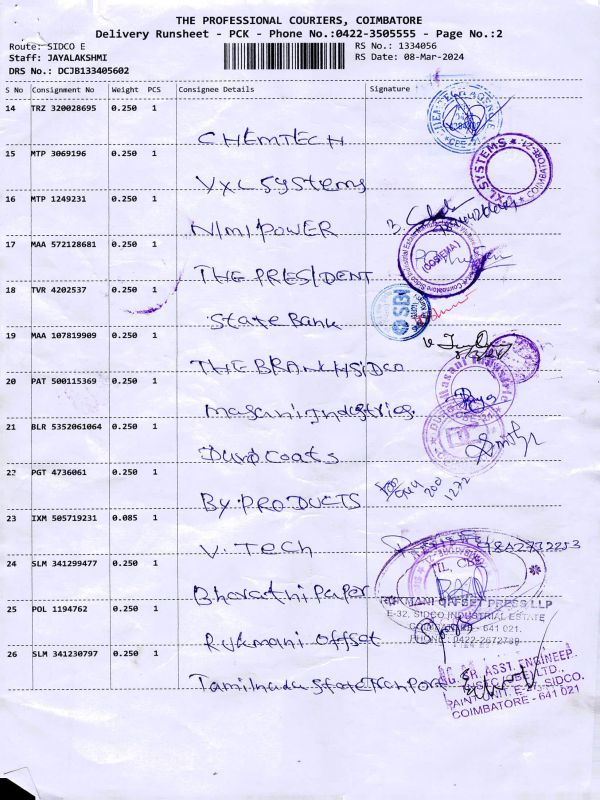 THE PROFESSIONAL COURIERS, COIMBATORE
Delivery Runsheet - PCK - Phone No.:0422-3505555 - Page No.:2
Route: SIDCO E
RS No.: 1334056
Staff: JAYALAKSHMI
RS Date: 08-Mar-2024
DRS No.: DCJB133405602
S No Consignment No Weight PCS Consignee Details Signature
14 TRZ 320028695 0.250 1
CHEMTECH
15 MTP 3069196 0.250 1
VXL SYSTEMS
SYSTEMS
COIMBATORE-21
16 MTP 1249231 0.250 1
NIMI POWER
17 MAA 572128681 0.250 1
(COSIEMA)
THE PRESIDENT
18 TVR 4202537 0.250 1
SBI
State Bank
19 MAA 107819909 0.250 1
THE BRANCH SIDCO
20 PAT 500115369 0.250 1
Masani Industries
21 BLR 5352061064 0.250 1
Duro coats
22 PGT 4736061 0.250 1
BY PRODUCTS
23 IXM 505719231 0.085 1
V. Tech
24 SLM 341299477 0.250 1
Bharathi Paper
RUKMANI OFFSET PRESS LLP
E-32, SIDCO INDUSTRIAL ESTATE
25 POL 1194762 0.250 1
COIMBATORE - 641 021.
PHONE: 0422-2672789
Rukmani Offset
26 SLM 341230797 0.250 1
ASST. ENGINEER.
SIDCO.
COIMBATORE - 641 021
Tamilnadu State Tranport